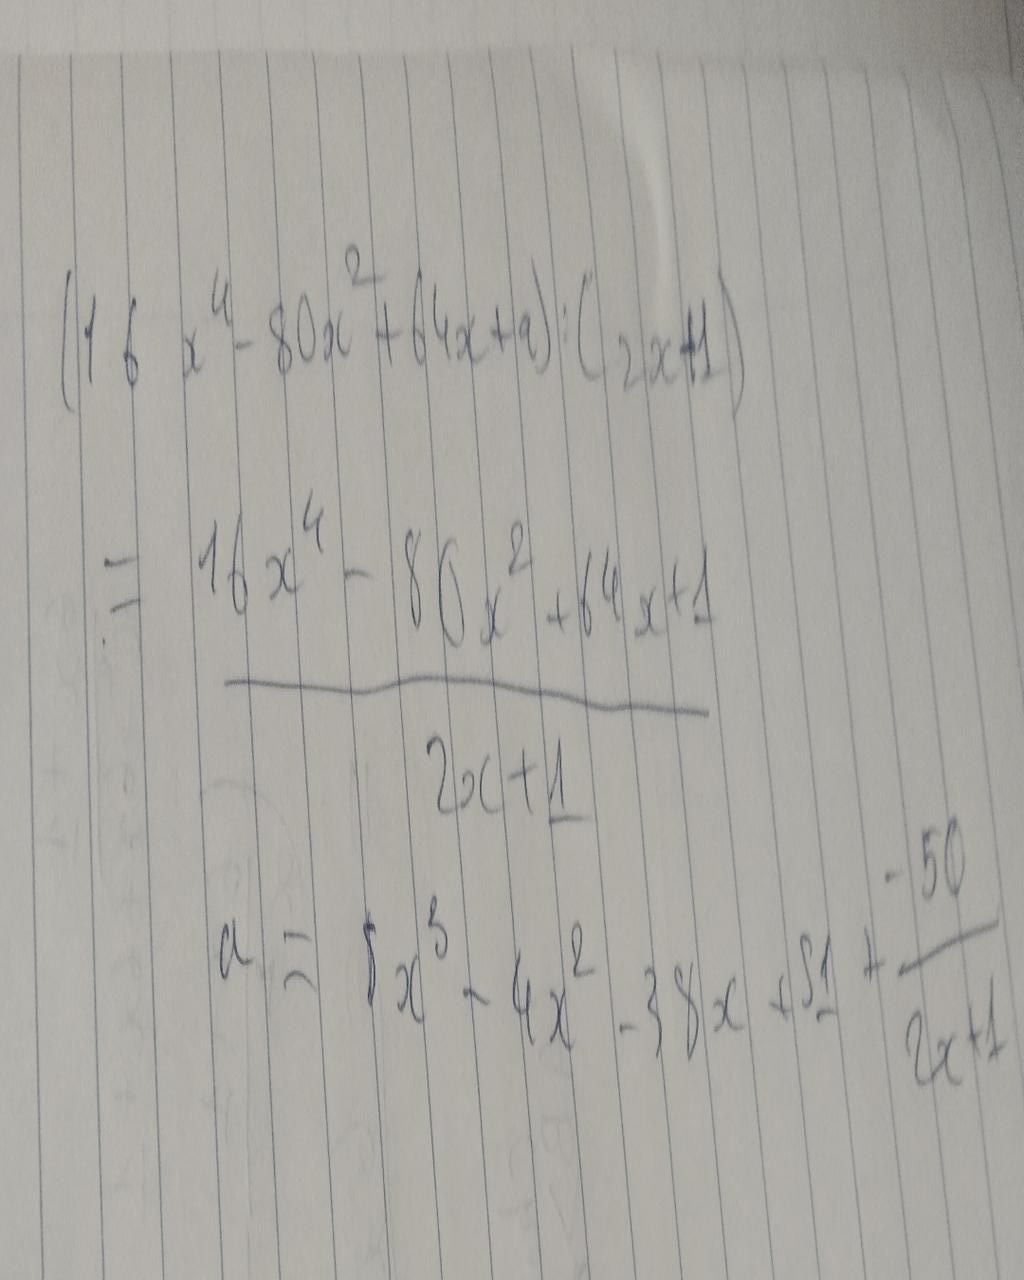 (16 x⁴ - 80x² + 64x + a) : (2x+1)
= 16x⁴ - 80x² + 64x + 1
2x + 1
a = 8x³ - 4x² - 38x + 51 + -50
2x+1